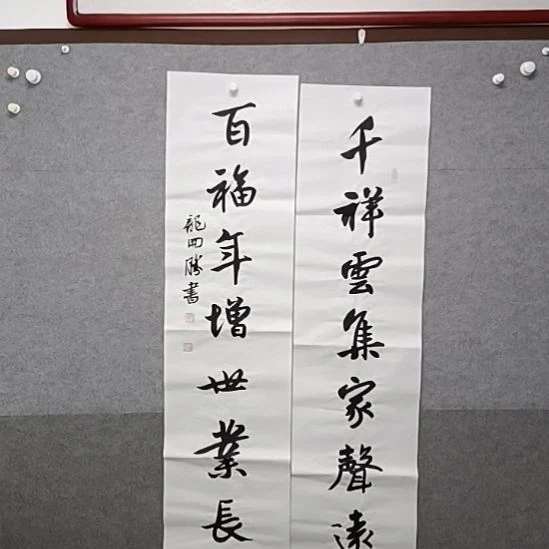 千祥雲集家聲遠
百福年增世業長
龍四勝書